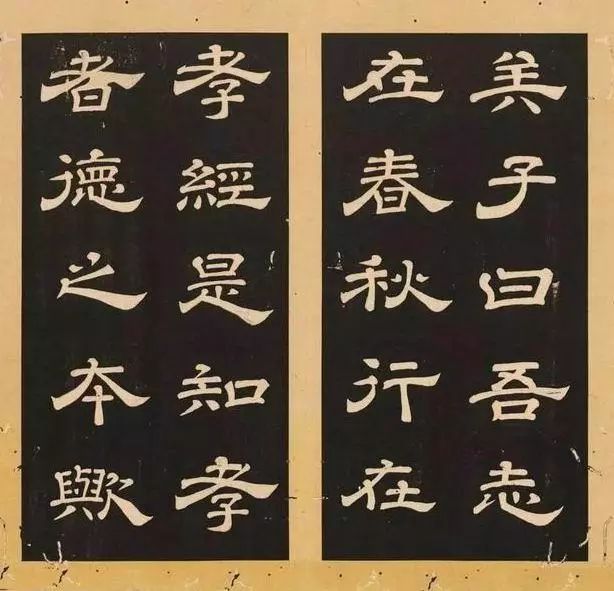 美子曰吾志
在春秋行在
孝經是知孝
者德之本歟